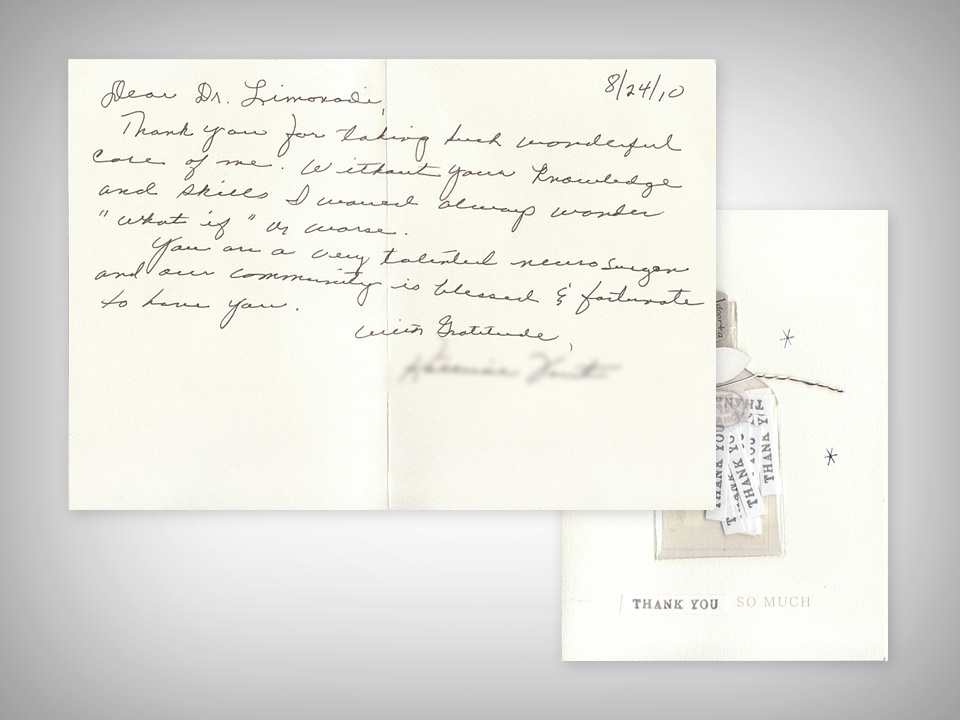 8/24/10
Dear Dr. Limonadi,
Thank you for taking such wonderful
care of me. Without your knowledge
and skills I would always wonder
"what if" or worse.
You are a very talented neurosurgeon
and our community is blessed & fortunate
to have you.
With Gratitude,
THANK YOU
THANK YOU
THANK YOU
THANK YOU
THANK YOU SO MUCH